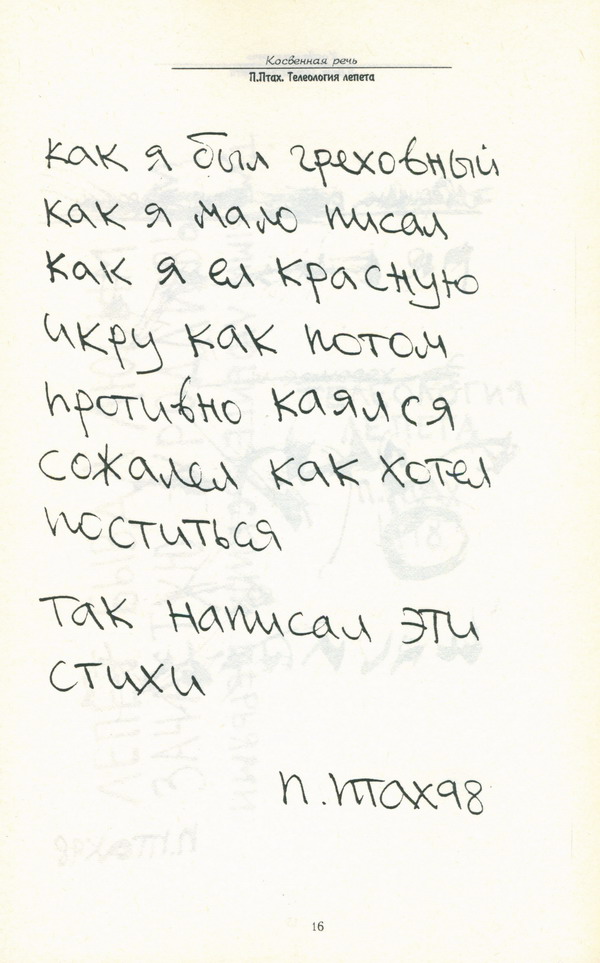 Косвенная речь
П.Птах. Телеология лепета
как я был греховный
как я мало писал
как я ел красную
икру как потом
противно каялся
сожалел как хотел
поститься
так написал эти
стихи
П. Птах98
16